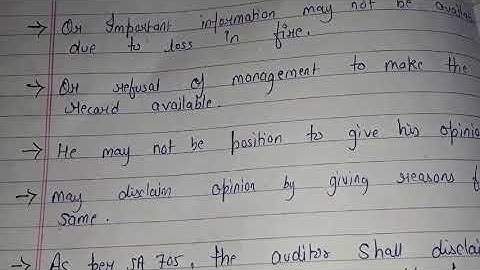 → Or Important information may not be availa
due to loss in fire.
→ Or refusal of management to make the
record available.
→ He may not be position to give his opinio
→ may disclaim opinion by giving reasons f
same.
→ As per SA 705, the auditor shall disclai